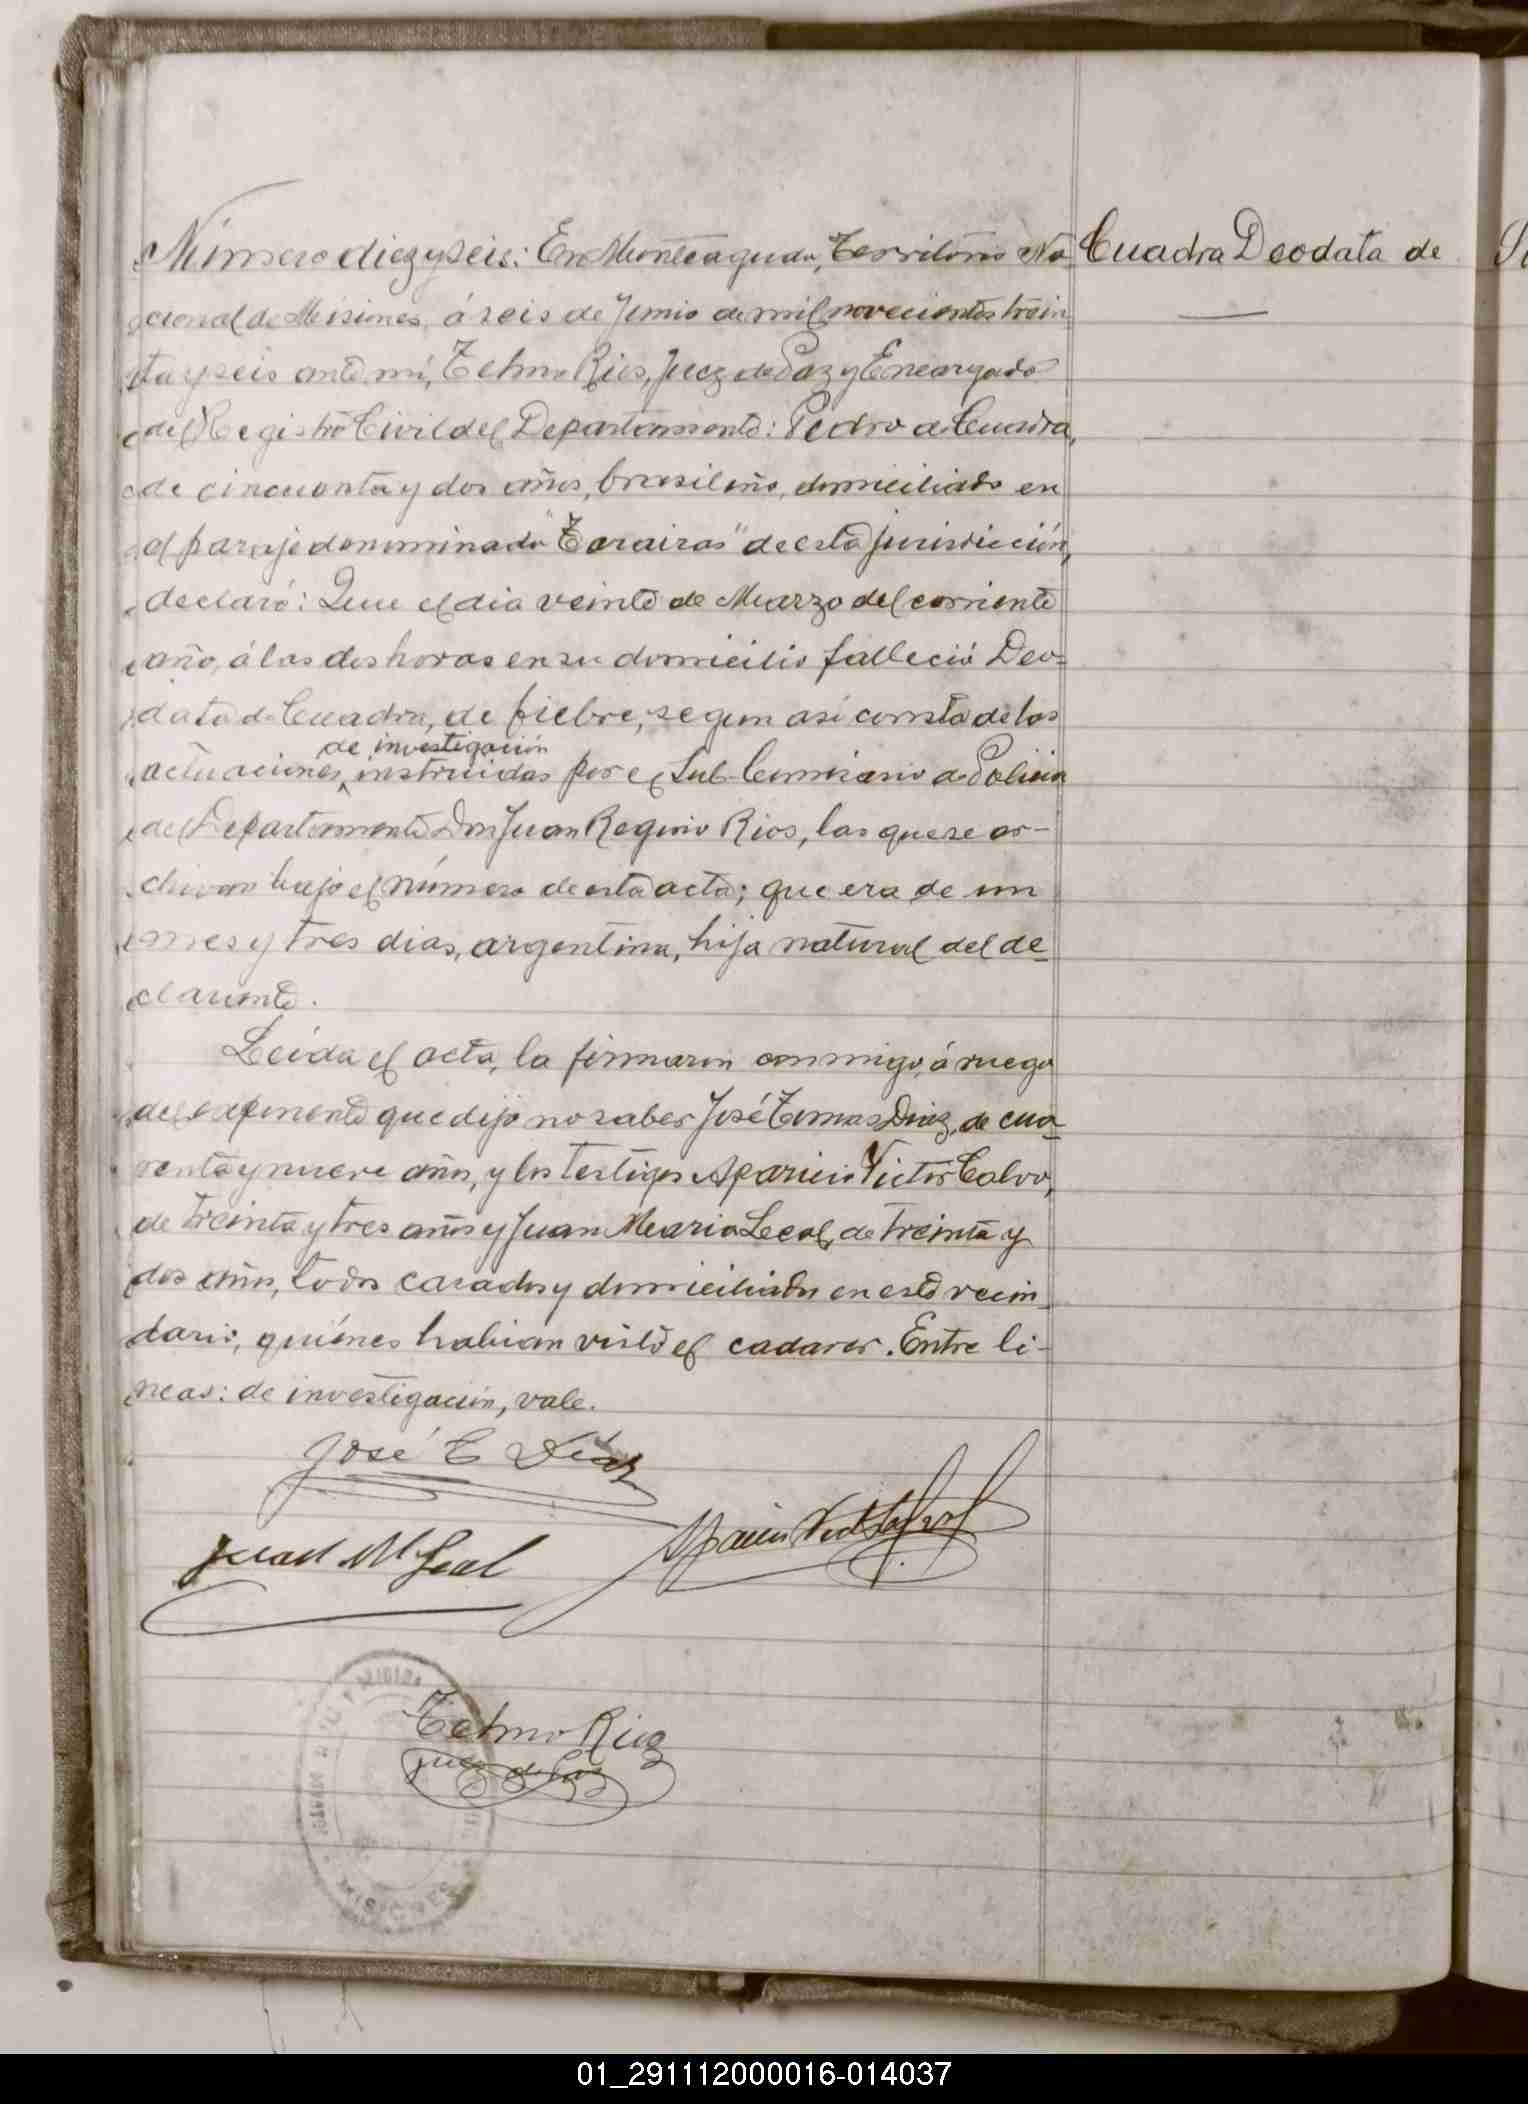 Número diez y seis: En Monteagudo, Territorio Na
Cuadra Deodata de
cional de Misiones, á seis de Junio de mil novecientos trein
ta y seis ante mí, Telmo Rios, Juez de Paz y Encargado
del Registro Civil del Departamento: Pedro de Cuadra,
de cincuenta y dos años, brasileño, domiciliado en
el paraje denominado "Tarairas" de esta jurisdicción,
declaró: Que el dia veinte de Marzo del corriente
año, á las dos horas en su domicilio falleció Deo-
data de Cuadra, de fiebre, segun asi consta de las
de investigación
actuaciones instruidas por el Sub-Comisario de Policia
del Departamento Don Juan Regino Rios, las que se ar-
chivan bajo el número de esta acta; que era de un
mes y tres dias, argentina, hija natural del de-
clarante.
Leída el acta, la firmaron conmigo, á ruego
del exponente que dijo no saber José Tomas Diaz, de cua-
renta y nueve años, y los testigos Aparicio Victor Calvo,
de treinta y tres años y Juan Maria Leal, de treinta y
dos años, todos casados y domiciliados en este vecin-
dario, quiénes habian visto el cadaver. Entre li-
neas: de investigación, vale.
José T Díaz
Juan M Leal
Telmo Rios
Juez de Paz
MISIONES
01_291112000016-014037